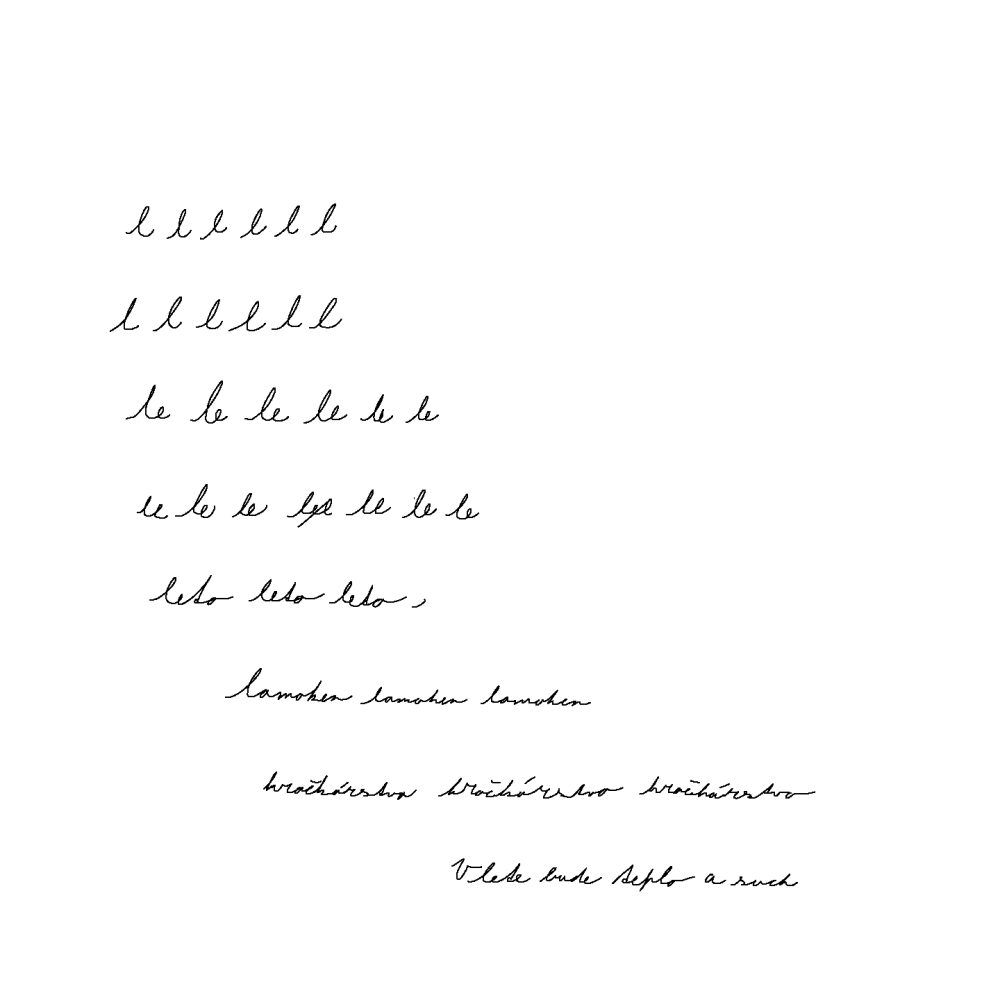 l l l l l l
l l l l l l
le le le le le le
le le le le le le le
leto leto leto ,
lamoken lamoken lamoken
hračkárstvo hračkárstvo hračkárstvo
V lete bude teplo a such